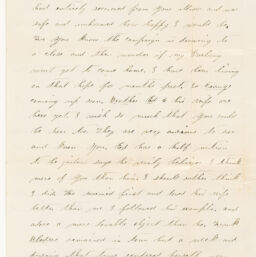 had entirely recovered from your illness and was
safe and unharmed how happy I would be.
As you know the campaign is drawing to
a close and the number of my Darling
must get to come home, I have been living
on that hope for months past, so
coming up now. Brother Ed & his wife are
here yet, I wish so much that you could
be here too. They are very anxious to see
and know you. Ed has a half notion
to be jealous says he verily believes I think
more of you than him. I should rather think
I did. He married first and loved his wife
better than me I followed his example, and
a more lovable object than he. Frank
remained in town but a week and
during that time rendered herself